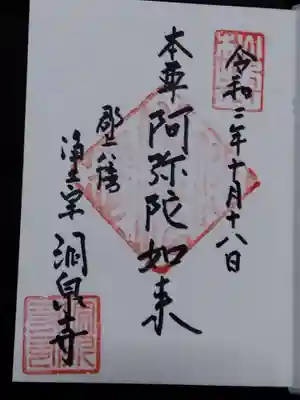 令和二年十月十八日
本尊阿弥陀如来
郡上八幡
浄土宗洞泉寺